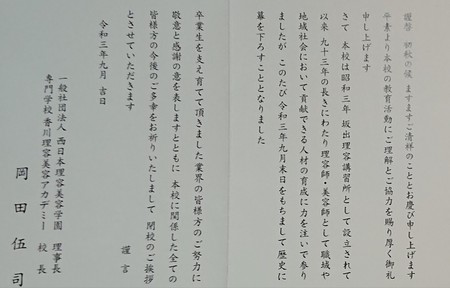 謹啓 初秋の候 ますますご清祥のこととお慶び申し上げます
平素より本校の教育活動にご理解とご協力を賜り厚く御礼
申し上げます
さて 本校は昭和三年 坂出理容講習所として設立されて
以来 九十三年の長きにわたり理容師・美容師として職域や
地域社会において貢献できる人材の育成に力を注いで参り
ましたが このたび 令和三年九月末日をもちまして歴史に
幕を下ろすこととなりました
卒業生を支え育てて頂きました業界の皆様方のご努力に
敬意と感謝の意を表しますとともに 本校に関係した全ての
皆様方の今後のご多幸をお祈りいたしまして 閉校のご挨拶
とさせていただきます
謹言
令和三年九月 吉日
一般社団法人 西日本理容美容学園 理事長
専門学校 香川理容美容アカデミー 校長
岡田伍司